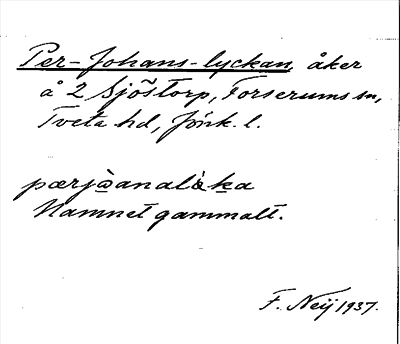 Per-Johans-lyckan, åker
å 2 Sjöstorp, Forserums sn,
Tveta hd, Jönk. l.
Namnet gammalt.
F. Neij 1937.